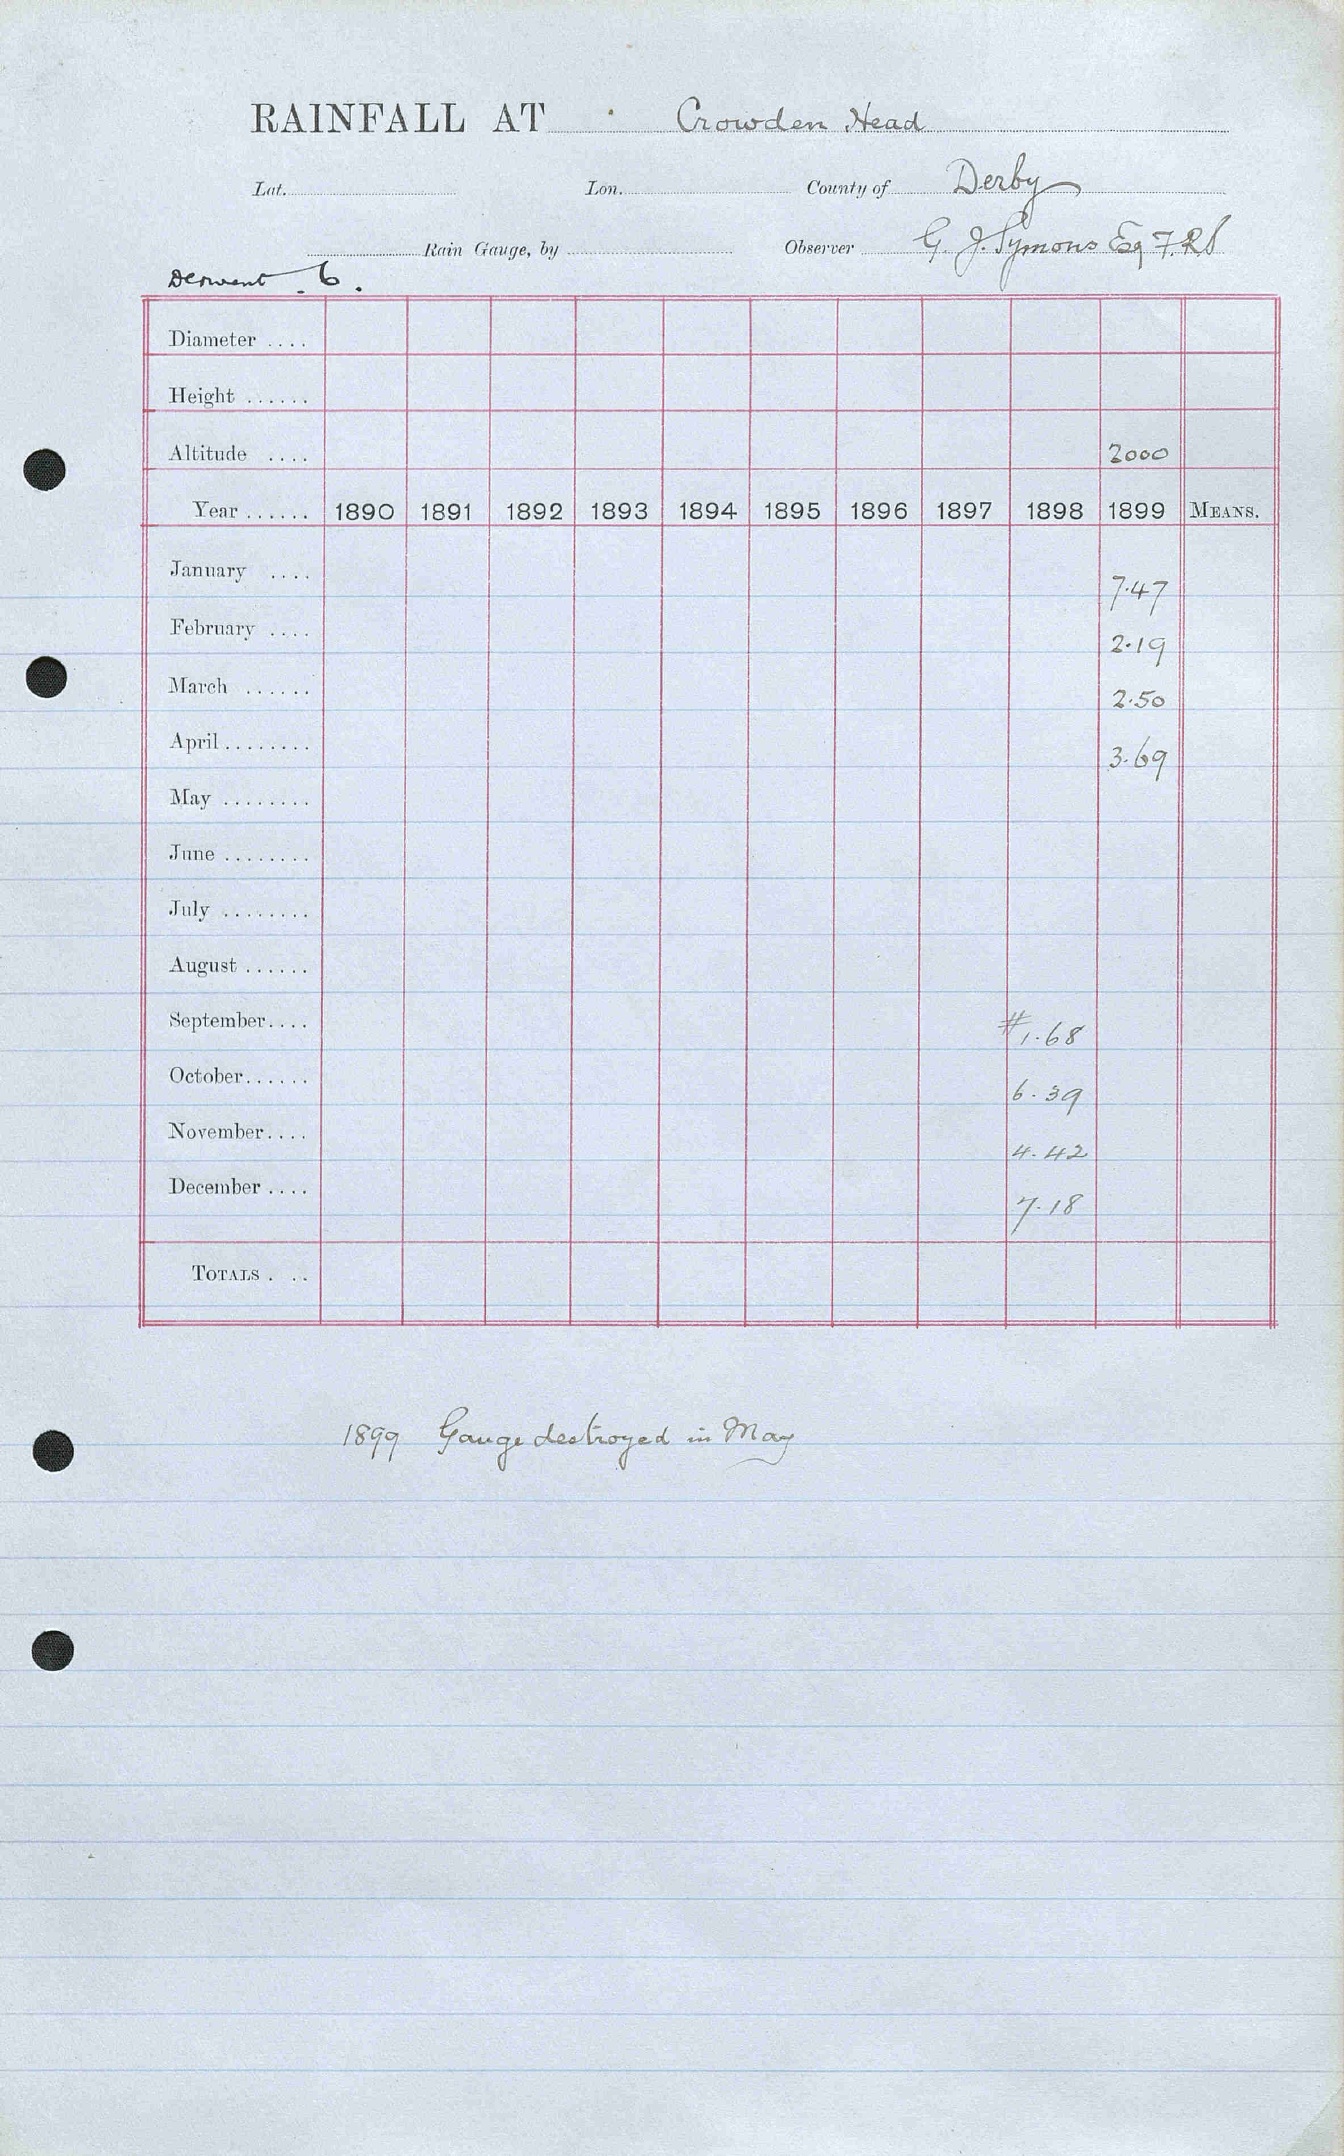 RAINFALL AT Crowden Head
Lat. Lon. County of Derby
Rain Gauge, by Observer G. J. Symons Esq F.R.S
Derwent . 6 .
Diameter ....
Height ......
Altitude .... 2000
Year ...... 1890 1891 1892 1893 1894 1895 1896 1897 1898 1899 MEANS.
January .... 7.47
February .... 2.19
March ...... 2.50
April ........ 3.69
May ........
June ........
July ........
August ......
September.... #1.68
October...... 6.39
November.... 4.42
December .... 7.18
TOTALS . ..
1899 Gauge destroyed in May